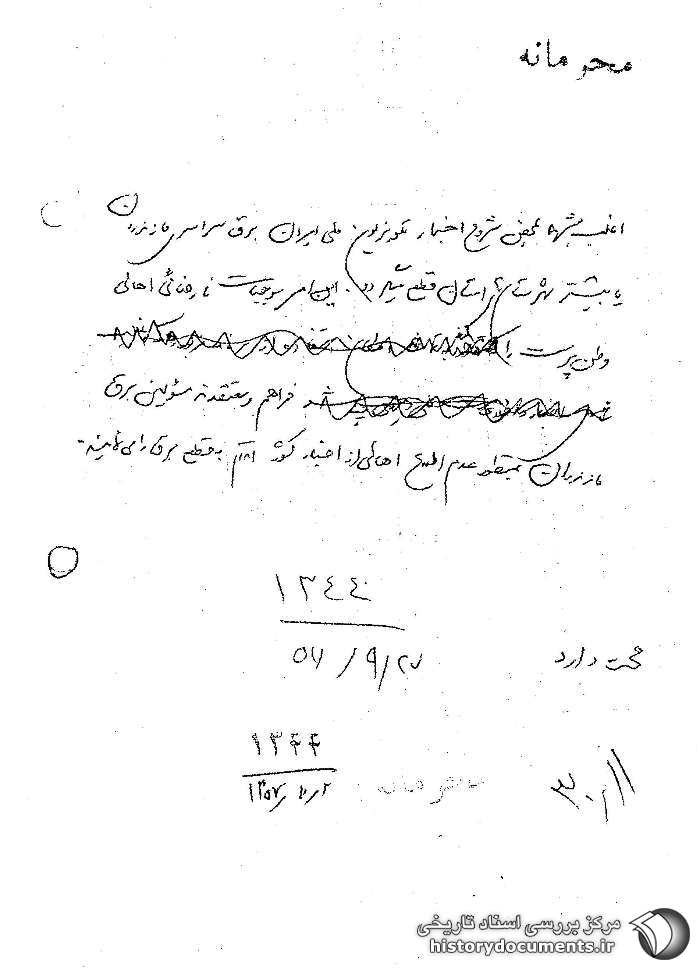 محرمانه
اغلب شبها بمحض شروع اخبار تلویزیون ملی ایران برق سراسر مازندران
یا بیشتر شهرستانهای استان قطع میگردد. این امر موجبات نارضائی اهالی
وطن پرست را
فراهم و معتقدند مسئولین برق
مازندران بمنظور عدم اطلاع اهالی از اخبار کشور اقدام به قطع برق می نمایند.
۱۳٤٤
۵۷/۹/۲۷
صحت دارد
۱۳۴۴
۱۳۵۷/۱۰/۲
محرمانه
مرکز بررسی اسناد تاریخی
historydocuments.ir